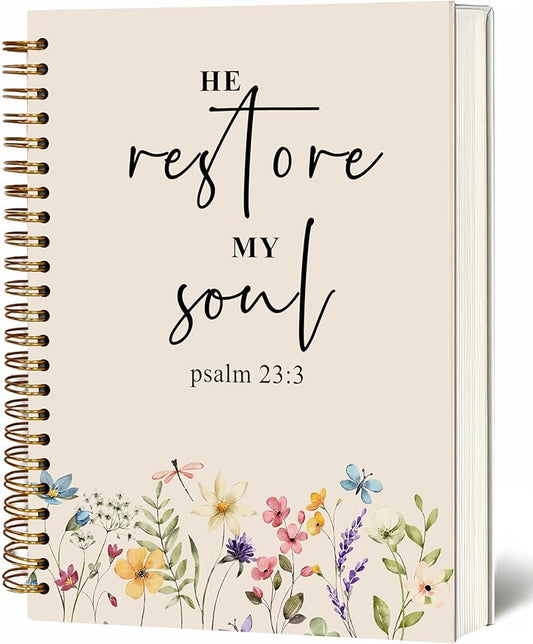 HE
restore
MY
soul
psalm 23:3